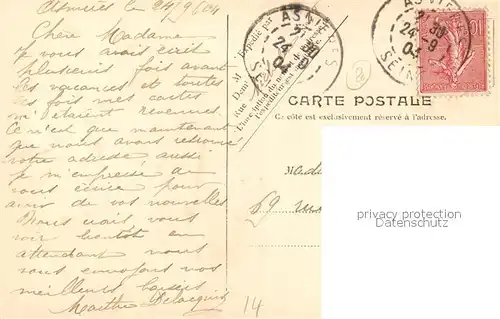 Asnières le 24/9 04
Chère Madame
je vous avais écrit
plusieurs fois avant
les vacances et toutes
les fois mes cartes
m'étaient revenues.
Ce n'est que maintenant
que nous avons retrouvé
votre adresse aussi
je m'empresse de
vous écrire pour
avoir de vos nouvelles
Nous irons vous
voir bientôt en
attendant nous
vous envoyons nos
meilleurs baisers
Marthe
Expédié par
M
Demt
Rue
ASNIÈRES
24 -9
04
SEINE
ASNIÈRES
24 -9
04
SEINE
10
CARTE POSTALE
Ce côté est exclusivement réservé à l'adresse.
Mada
69
privacy protection
Datenschutz
14